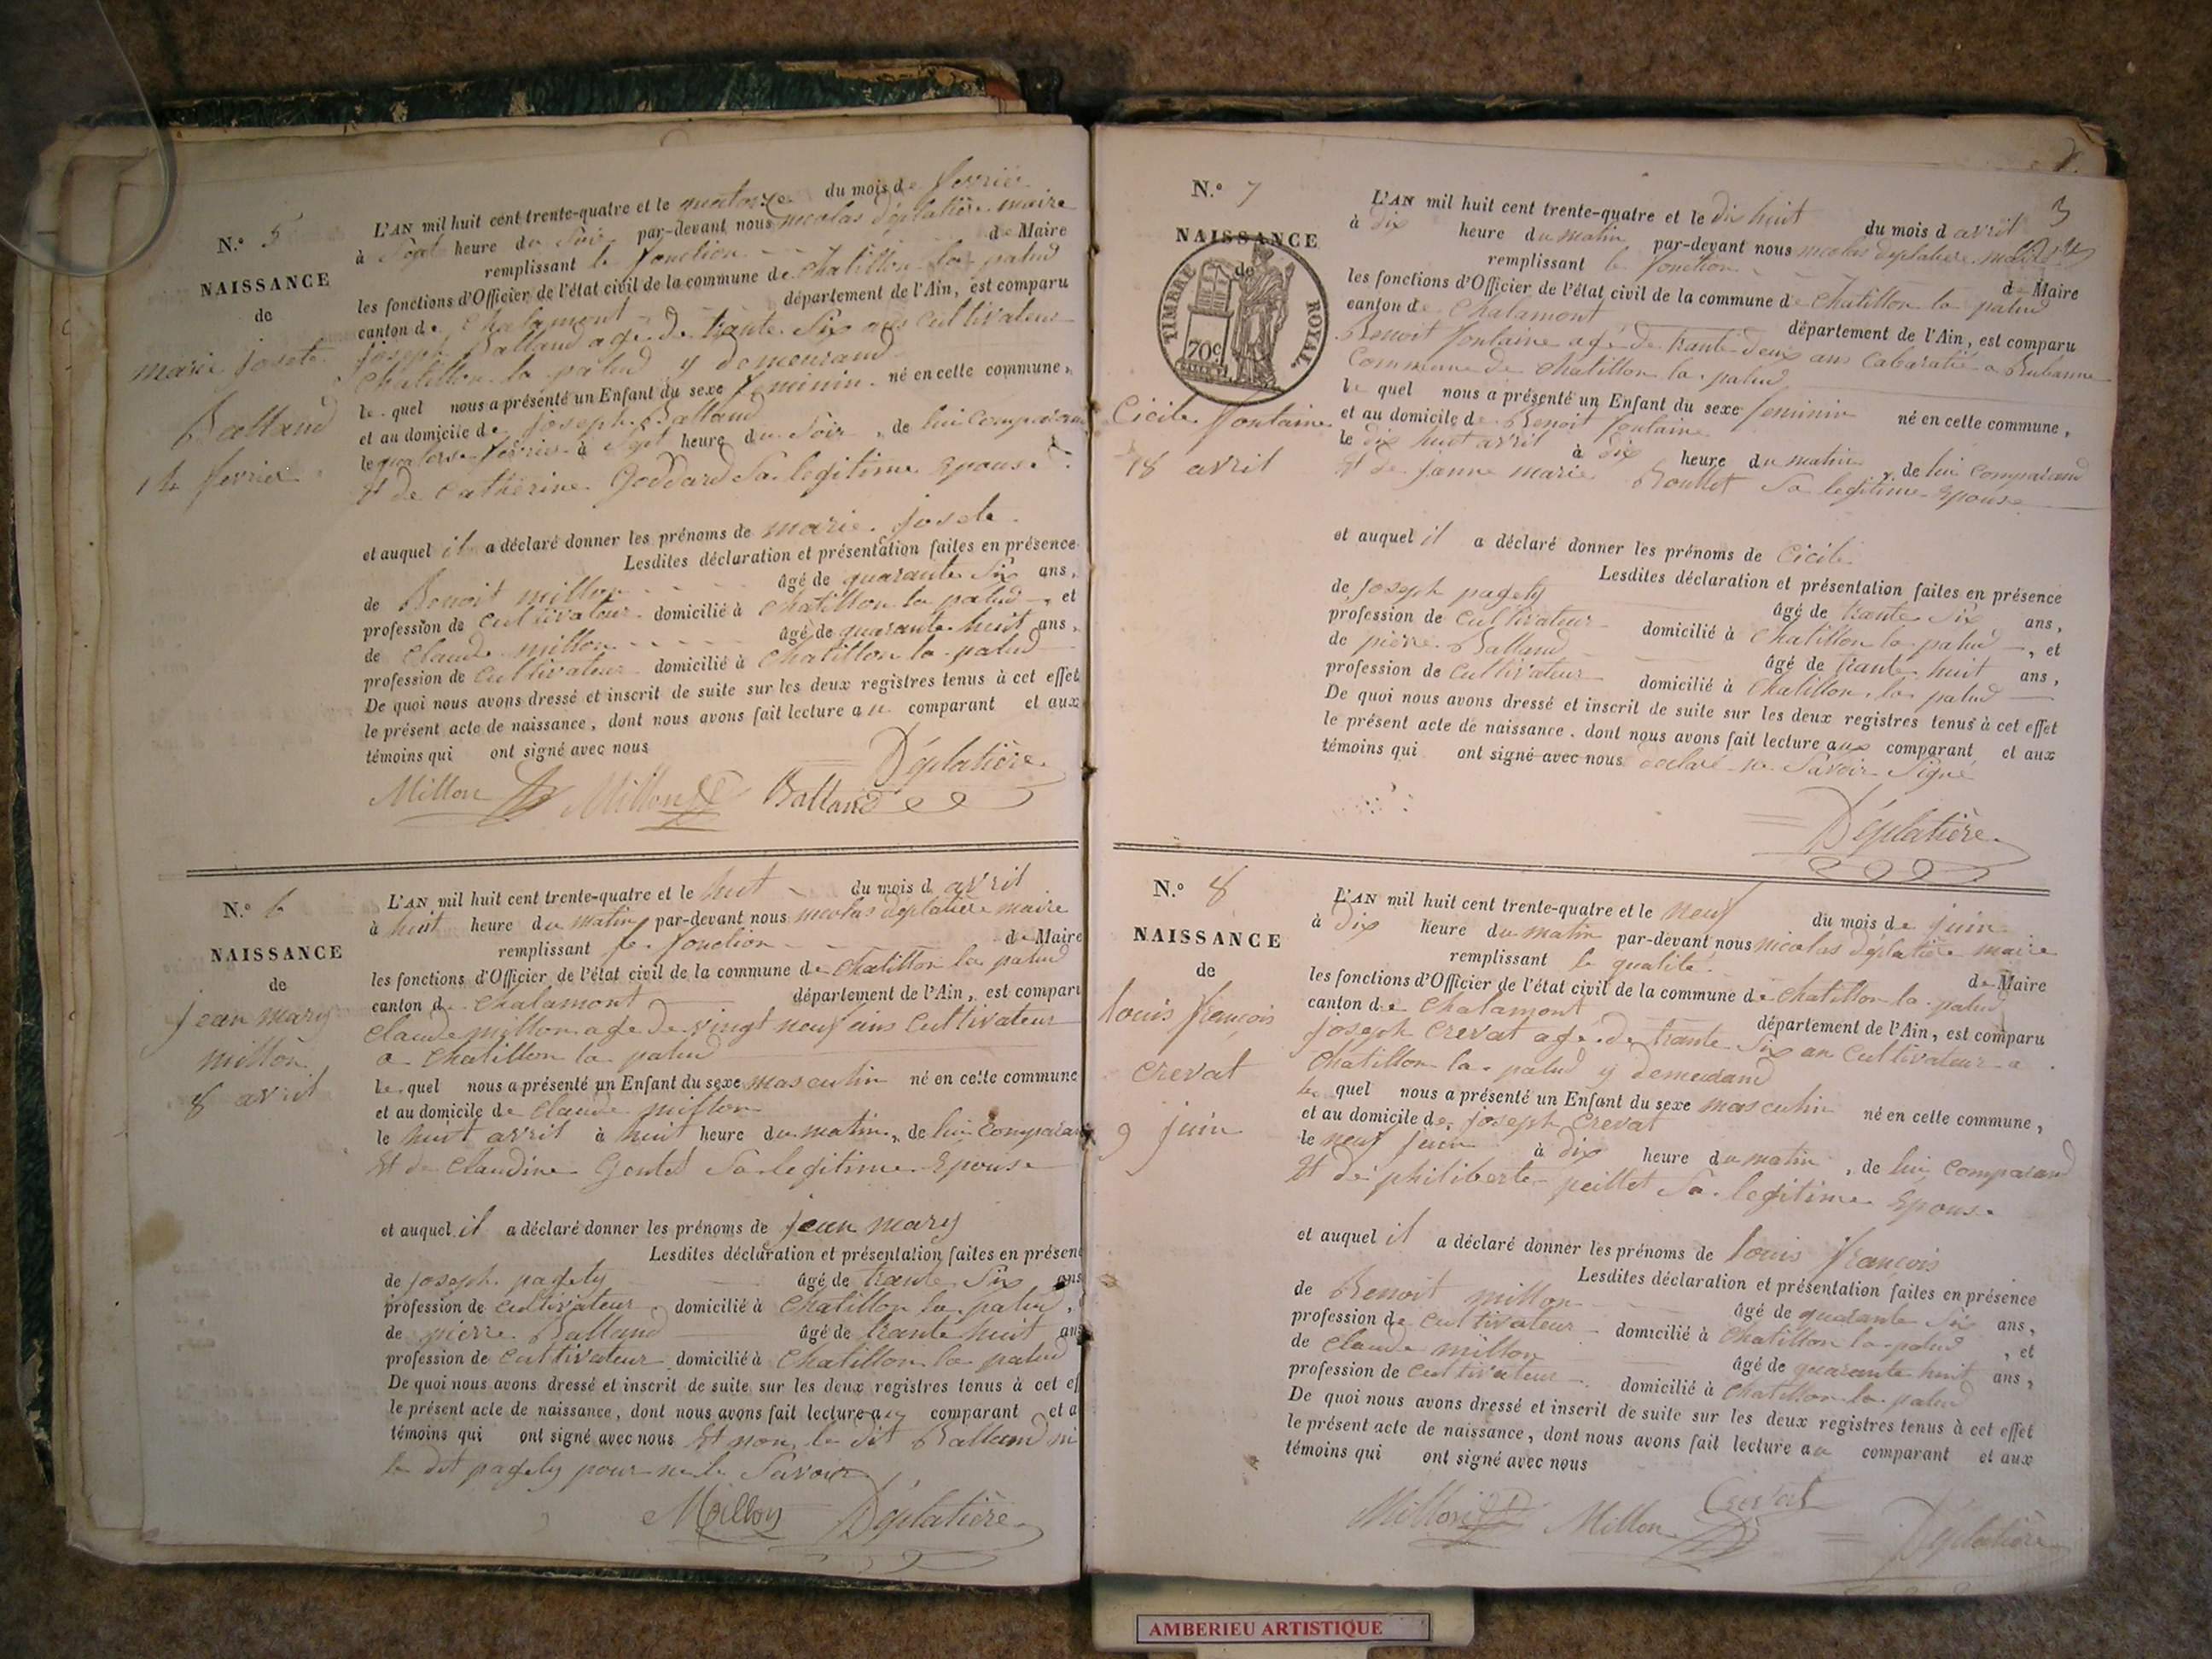 N.° 5
NAISSANCE
de
marie josete
Balland
14 fevrier
L'AN mil huit cent trente-quatre et le quatorze du mois de fevrier
à Sept heure du Soir par-devant nous nicolas déplatière maire
remplissant le fonction de Maire
les fonctions d'Officier de l'état civil de la commune de chatillon la palud
canton de chalamont département de l'Ain, est comparu
joseph Balland age de trante Six ans cultivateur
chatillon la palud y demeurand
le quel nous a présenté un Enfant du sexe feminin né en cette commune,
et au domicile de joseph Balland
le quatorse fevrier à Sept heure du Soir, de lui comparand
Et de catherine Goddard Sa legitime epouse
et auquel il a déclaré donner les prénoms de marie josete
Lesdites déclaration et présentation faites en présence
de Benoit millon âgé de quarante Six ans,
profession de cultivateur domicilié à chatillon la palud, et
de claude millon âgé de quarante huit ans,
profession de cultivateur domicilié à chatillon la palud
De quoi nous avons dressé et inscrit de suite sur les deux registres tenus à cet effet
le présent acte de naissance, dont nous avons fait lecture au comparant et aux
témoins qui ont signé avec nous
Déplatière
Millon Millon Balland
N.° 6
NAISSANCE
de
jean mary
millon
8 avril
L'AN mil huit cent trente-quatre et le huit du mois d avril
à huit heure du matin par-devant nous nicolas déplatière maire
remplissant le fonction de Maire
les fonctions d'Officier de l'état civil de la commune de chatillon la palud
canton de chalamont département de l'Ain, est comparu
claude millon age de vingt neuf ans cultivateur
a chatillon la palud
le quel nous a présenté un Enfant du sexe masculin né en cette commune
et au domicile de claude millon
le huit avril à huit heure du matin, de lui comparand
Et de claudine Sa legitime Epouse
et auquel il a déclaré donner les prénoms de jean mary
Lesdites déclaration et présentation faites en présen
de joseph pagely âgé de trante Six ans
profession de cultivateur domicilié à chatillon la palud,
de pierre Balland âgé de trante huit ans
profession de cultivateur domicilié à chatillon la palud
De quoi nous avons dressé et inscrit de suite sur les deux registres tenus à cet ef
le présent acte de naissance, dont nous avons fait lecture aux comparant et a
témoins qui ont signé avec nous Et non le dit Balland ni
le dit pagely pour ne le Savoir
Millon Déplatière
3
N.° 7
NAISSANCE
de
TIMBRE ROYAL
70c
Cicile fontaine
18 avril
L'AN mil huit cent trente-quatre et le dix huit du mois d avril
à dix heure du matin par-devant nous nicolas déplatière maire
remplissant le fonction de Maire
les fonctions d'Officier de l'état civil de la commune de chatillon la palud
canton de Chalamont département de l'Ain, est comparu
Benoit fontaine agé de trante deux ans cabaratié a Bublanne
Commune de chatillon la palud
le quel nous a présenté un Enfant du sexe feminin né en cette commune,
et au domicile de Benoit fontaine
le dix huit avril à dix heure du matin, de lui comparand
Et de janne marie Roullet Sa legitime epouse
et auquel il a déclaré donner les prénoms de Cicile
Lesdites déclaration et présentation faites en présence
de joseph pagely âgé de trante Six ans,
profession de cultivateur domicilié à chatillon la palud, et
de pierre Balland âgé de trante huit ans,
profession de cultivateur domicilié à chatillon la palud
De quoi nous avons dressé et inscrit de suite sur les deux registres tenus à cet effet
le présent acte de naissance, dont nous avons fait lecture aux comparant et aux
témoins qui ont signé avec nous declaré ne Savoir Signé
Déplatière
N.° 8
NAISSANCE
de
louis françois
crevat
9 juin
L'AN mil huit cent trente-quatre et le neuf du mois de juin
à Dix heure du matin par-devant nous nicolas déplatière maire
remplissant le qualité de Maire
les fonctions d'Officier de l'état civil de la commune de chatillon la palud
canton de chalamont département de l'Ain, est comparu
joseph crevat age de trante Six an cultivateur a
chatillon la palud y demeurand
le quel nous a présenté un Enfant du sexe masculin né en cette commune,
et au domicile de joseph crevat
le neuf juin à dix heure du matin, de lui comparand
Et de philiberte peillet Sa legitime Epouse
et auquel il a déclaré donner les prénoms de louis françois
Lesdites déclaration et présentation faites en présence
de Benoit millon âgé de quarante Six ans,
profession de cultivateur domicilié à chatillon la palud, et
de claude millon âgé de quarante huit ans,
profession de cultivateur domicilié à chatillon la palud
De quoi nous avons dressé et inscrit de suite sur les deux registres tenus à cet effet
le présent acte de naissance, dont nous avons fait lecture au comparant et aux
témoins qui ont signé avec nous
Millon Millon Crevat Déplatière
AMBERIEU ARTISTIQUE